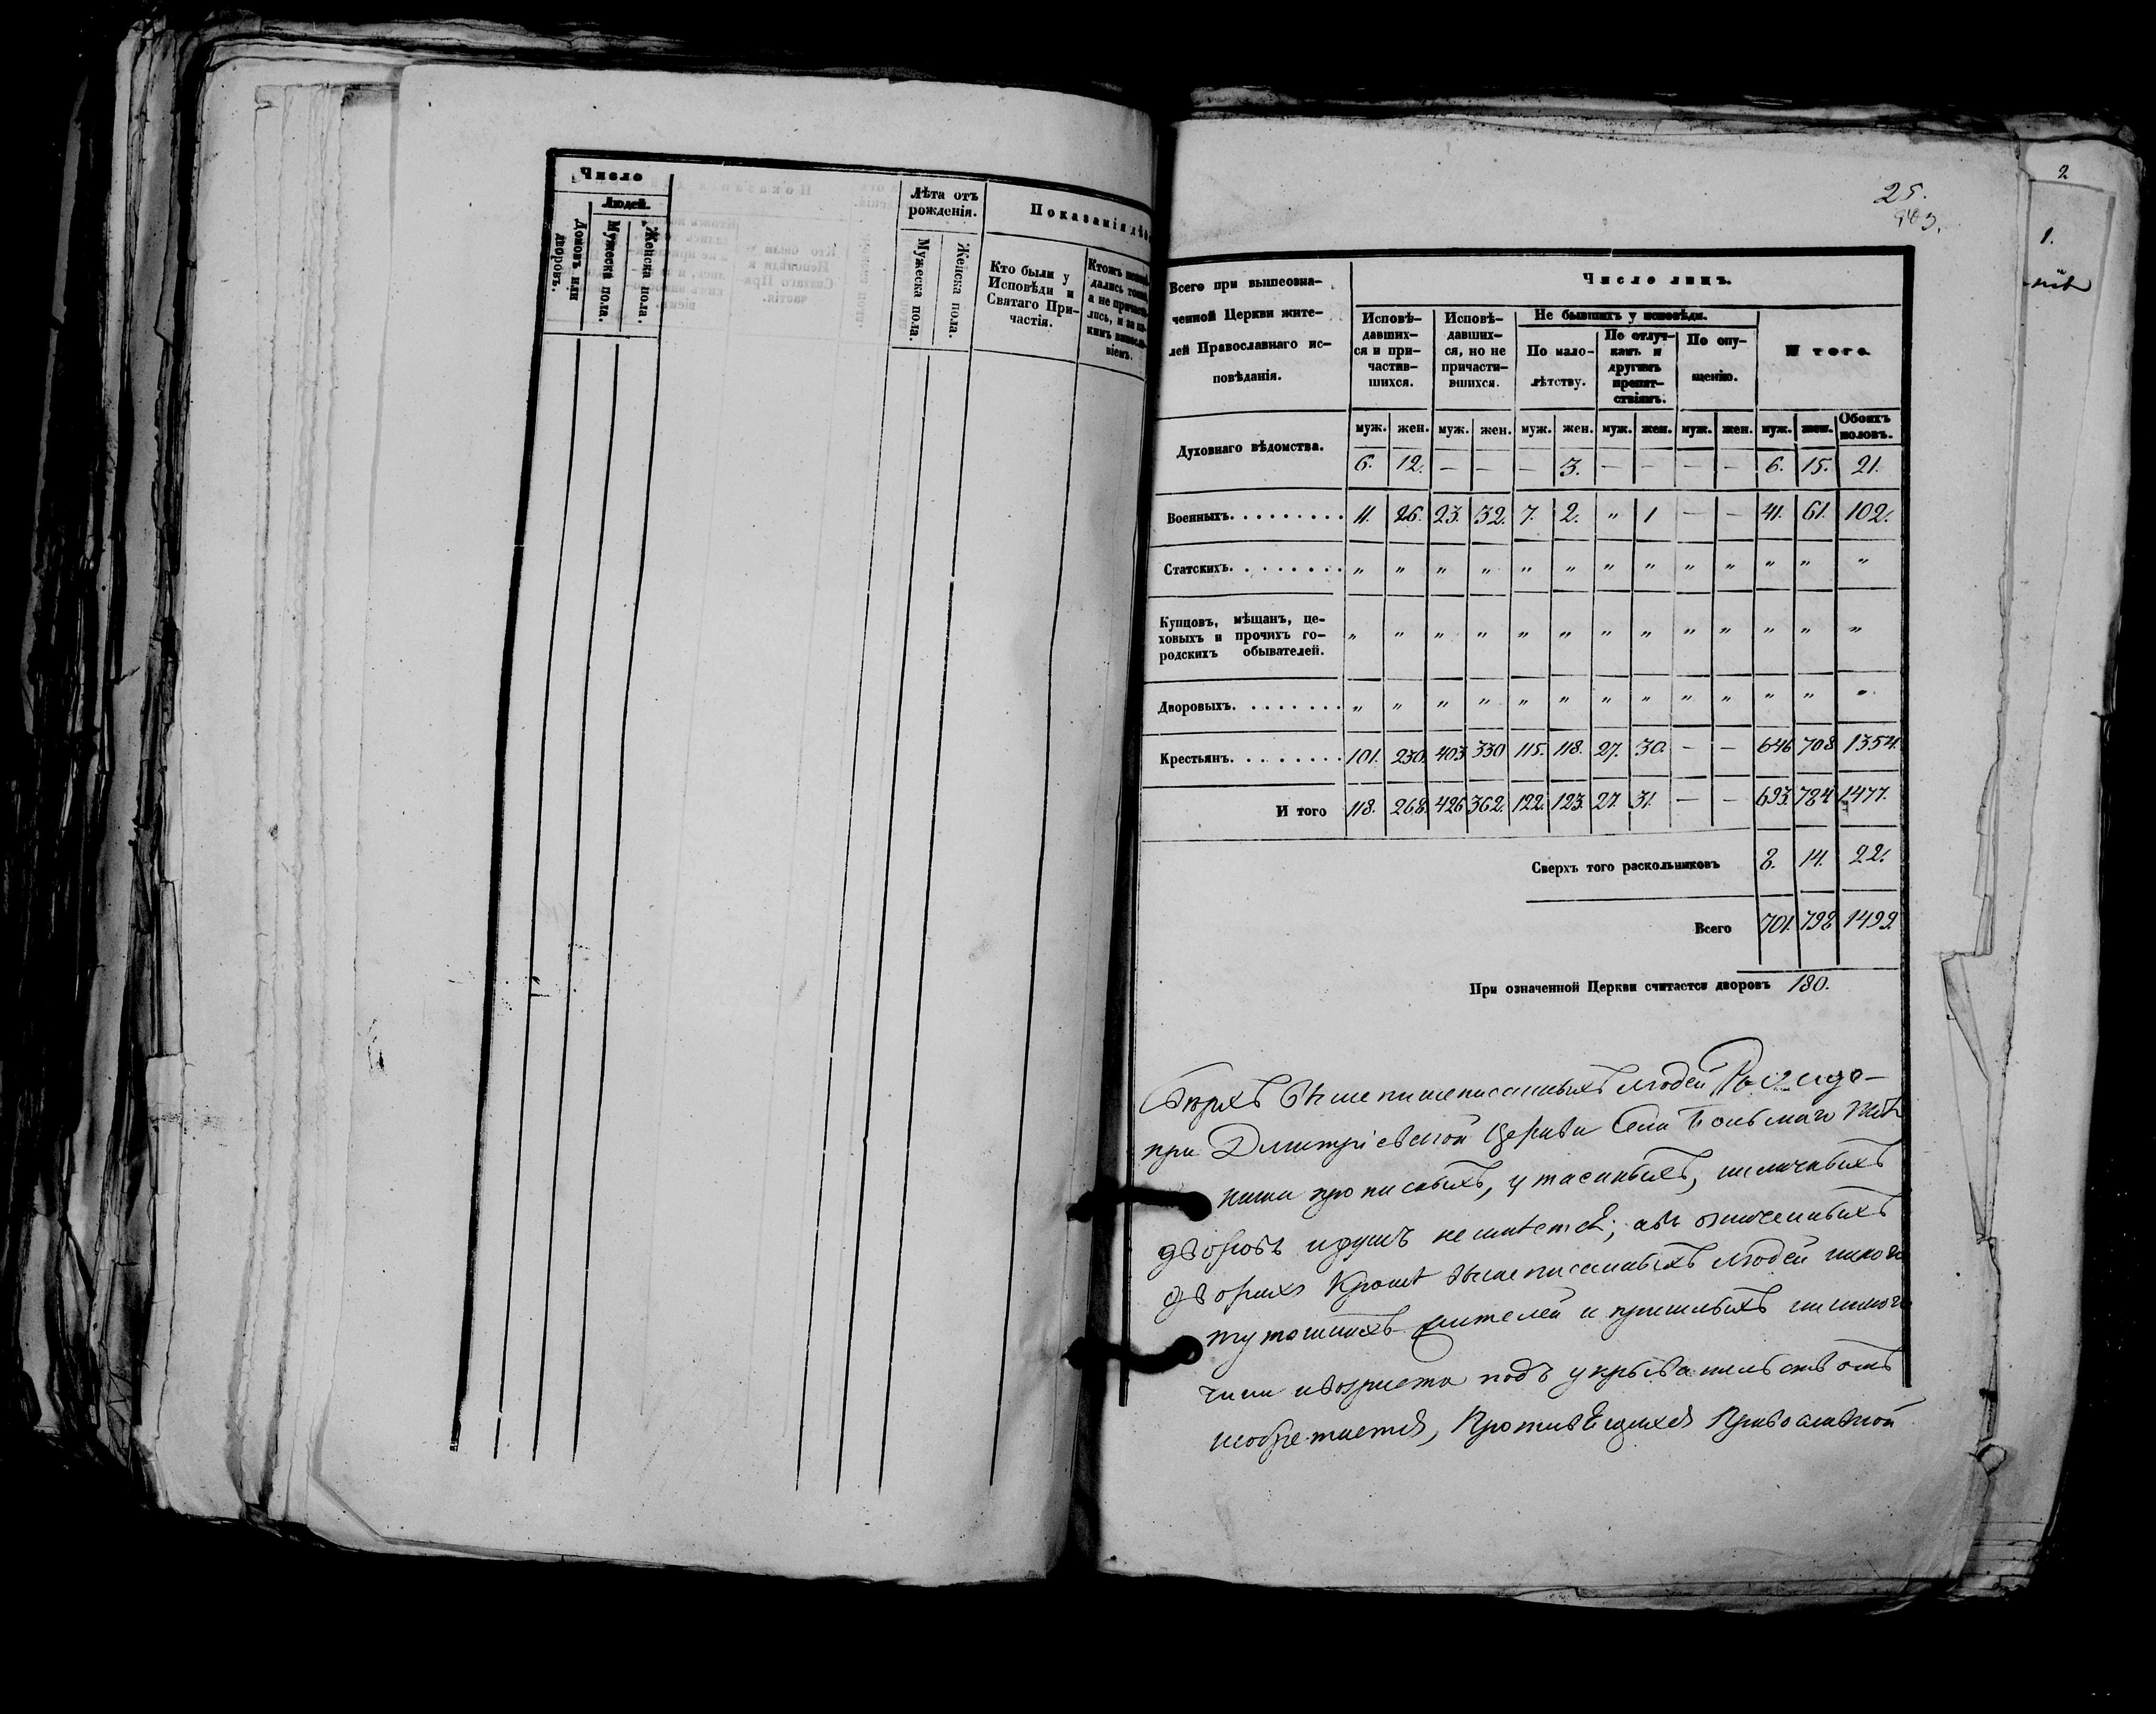 Число
Людей.
Домовъ или дворовъ.
Мужеска пола.
Женска пола.
Лѣта отъ рожденія.
Мужеска пола.
Женска пола.
Показаніи дѣй
Кто были у
Исповѣди и
Святаго При-
частія.
Ктожъ исповѣ
дались токмо,
а не причасти
лись, и за ка
кимъ винословіемъ.
25.
Всего при вышеозна-
ченной Церкви жите-
лей Православнаго ис-
повѣданія.
Число лицъ.
Исповѣ-
давших-
ся и при-
частив-
шихся.
Исповѣ-
давших-
ся, но не
причасти-
вшихся.
Не бывшихъ у исповѣди.
По мало-
лѣтству.
По отлуч-
камъ и
другимъ
препят-
ствіямъ.
По опу-
щенію.
И того.
муж. жен. муж. жен. муж. жен. муж. жен. муж. жен. муж. жен. Обоихъ половъ.
Духовнаго вѣдомства. 6. 12. — — — 3. — — — — 6. 15. 21.
Военныхъ. . . . . . . . . 11. 26. 23. 32. 7. 2. „ 1 — — 41. 61. 102.
Статскихъ. . . . . . . . „ „ „ „ „ „ „ „ „ „ „ „ „
Купцовъ, мѣщанъ, це-
ховыхъ и прочихъ го-
родскихъ обывателей. „ „ „ „ „ „ „ „ „ „ „ „ „
Дворовыхъ. . . . . . . . „ „ „ „ „ „ „ „ „ „ „ „ „
Крестьянъ. . . . . . . . 101. 230. 403 330 115. 118. 27. 30. — — 646 708 1354.
И того 118. 268. 426 362. 122. 123. 27. 31. — — 693. 784 1477.
Сверхъ того раскольниковъ 8. 14. 22.
Всего 701. 798 1499.
При означенной Церкви считается дворовъ 180.
Сверхъ людей
при Димитріевской Церкви Села
прописныхъ, утаенныхъ,
дворовъ и душъ не имѣется; а въ означенныхъ
дворахъ кромѣ вышеписанныхъ людей никого
жителей и пришлыхъ никакого
чина и возраста подъ укрывательствомъ
необретается, Противящихся Православной
2
1.